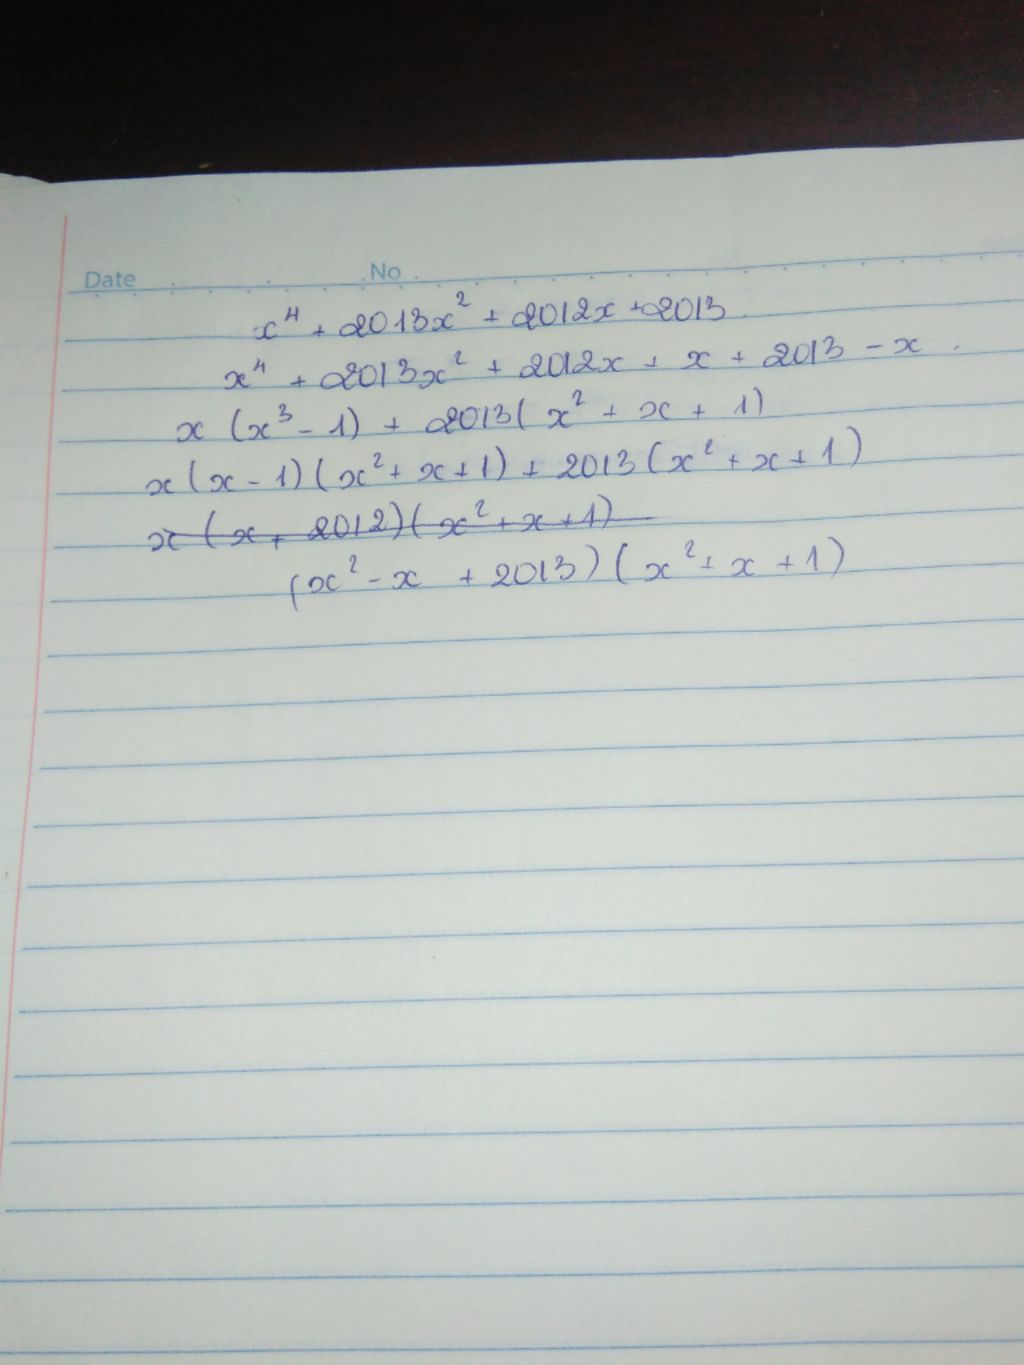 Date No
x⁴ + 2013x² + 2012x + 2013
x⁴ + 2013x² + 2012x + x + 2013 - x
x (x³ - 1) + 2013( x² + x + 1)
x (x - 1) (x² + x + 1) + 2013 (x² + x + 1)
x (x + 2012)(x² + x + 1)
(x² - x + 2013) (x² + x + 1)